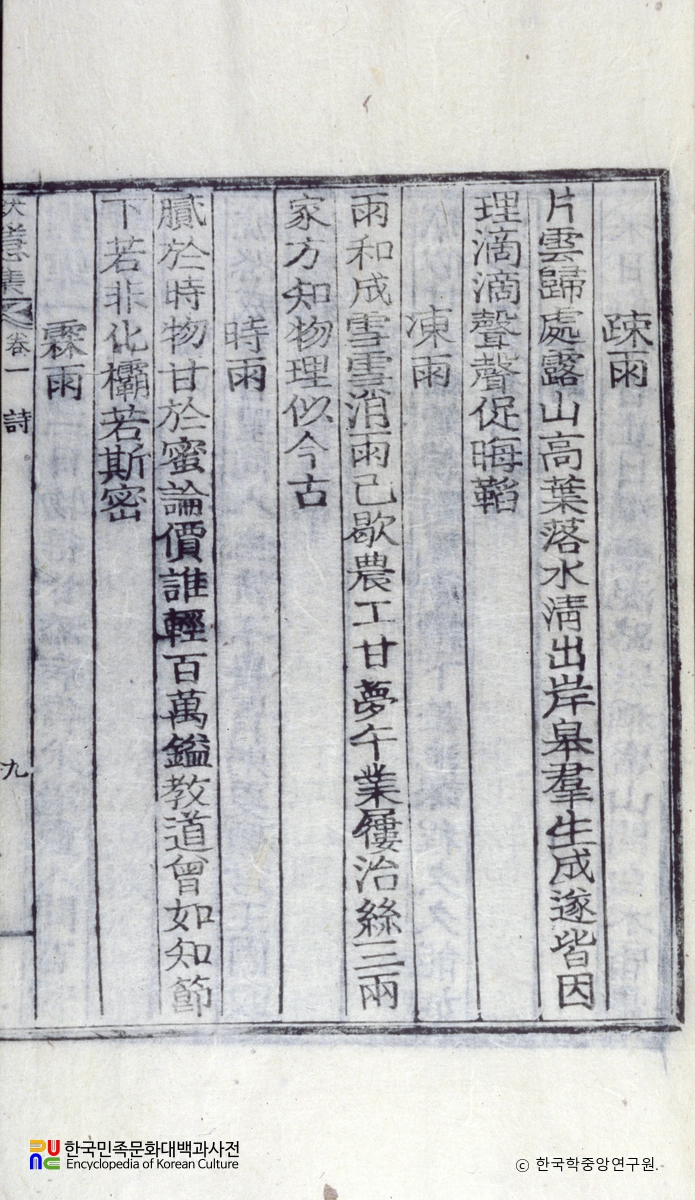 疎雨
片雲歸處露山高葉落水淸出岸皋羣生成遂皆因
理滴滴聲聲促晦韜
凍雨
雨和成雪雪消雨已歇農工甘夢午業屨治絲三兩
家方知物理似今古
時雨
膩於時物甘於蜜論價誰輕百萬鎰教道曾如知節
下若非化欛若斯密
霖雨
集 卷一 詩 九
한국민족문화대백과사전
Encyclopedia of Korean Culture
ⓒ 한국학중앙연구원.